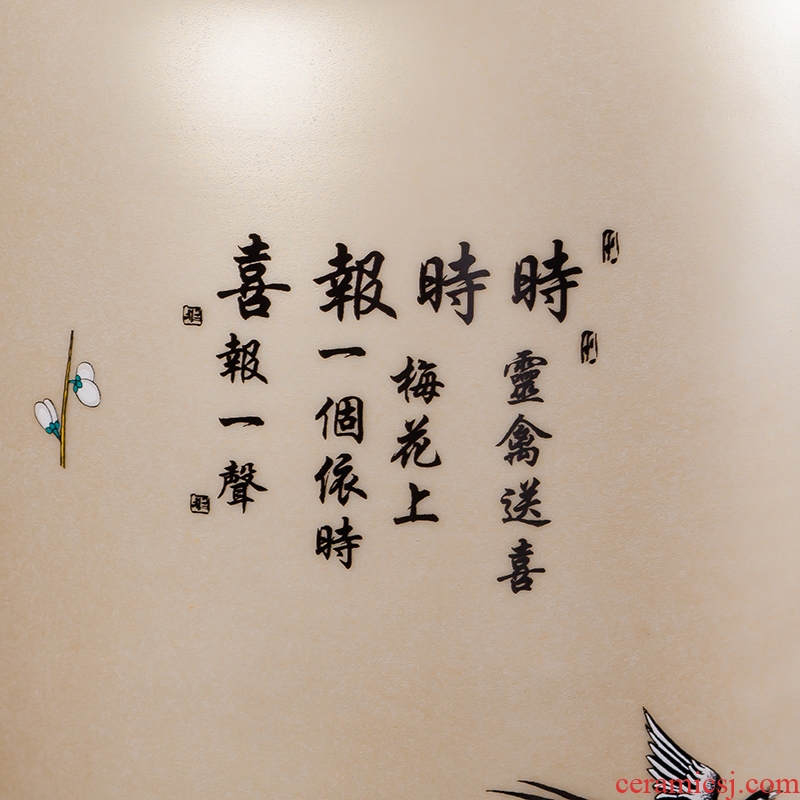 時時報喜
靈禽送喜
梅花上
一個依時
報一聲
ceramicsj.com